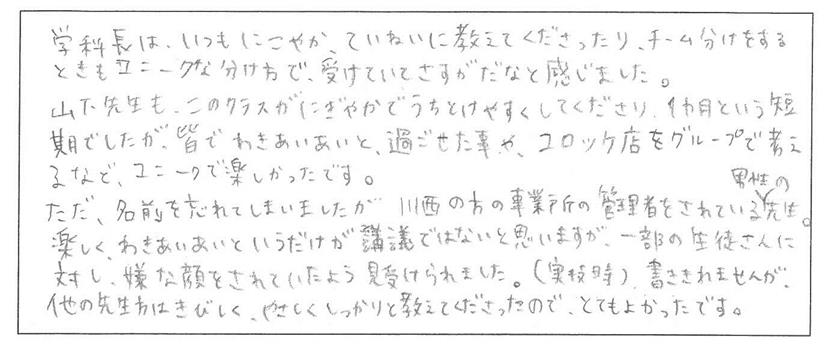 学科長は、いつもにこやか、ていねいに教えてくださったり、チーム分けをする
ときもユニークな分け方で、受けていてさすがだなと感じました。
山下先生も、このクラスがにぎやかでうちとけやすくしてくださり、1ヵ月という短
期でしたが、皆でわきあいあいと、過ごせた事や、コロッケ店をグループで考え
るなど、ユニークで楽しかったです。
ただ、名前を忘れてしまいましたが 川西の方の事業所の管理者をされている男性の先生。
楽しく、わきあいあいというだけが講議ではないと思いますが、一部の生徒さんに
対し、嫌な顔をされていたよう見受けられました。(実技時)書ききれませんが、
他の先生方はきびしく、やさしくしっかりと教えてくださったので、とてもよかったです。